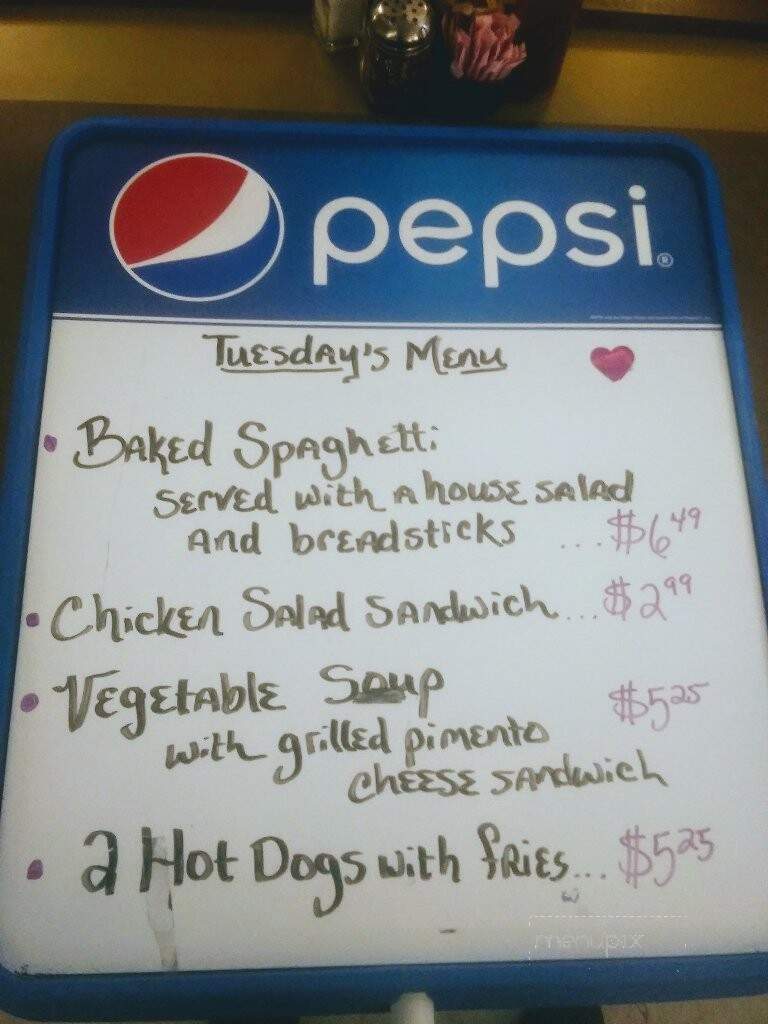 pepsi®
Tuesday's Menu
• Baked Spaghetti
served with a house salad
and breadsticks ... $6.49
• Chicken Salad Sandwich... $2.99
• Vegetable Soup $5.25
with grilled pimento
cheese sandwich
• 2 Hot Dogs with fries... $5.25
menupix